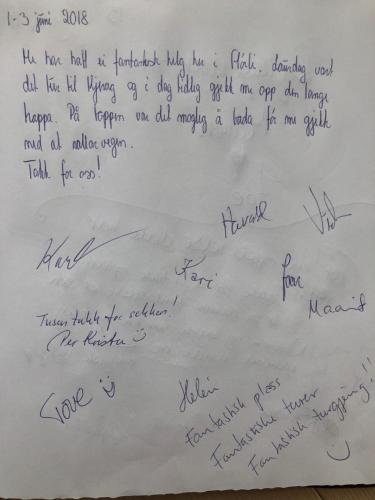 1-3 juni 2018
Me har hatt ei fantastisk helg her i Flørli. Laurdag vart
det tur til Kjerag og i dag tidleg gjekk me opp den lange
trappa. På toppen var det mogleg å bada før me gjekk
ned at rallarvegen.
Takk for oss!
Harald
Karl
Kari
Maarit
Tusen takk for sekken!
Per Kristian
Tove
Helen
Fantastisk plass
Fantastiske turer
Fantastisk turgjeng!!